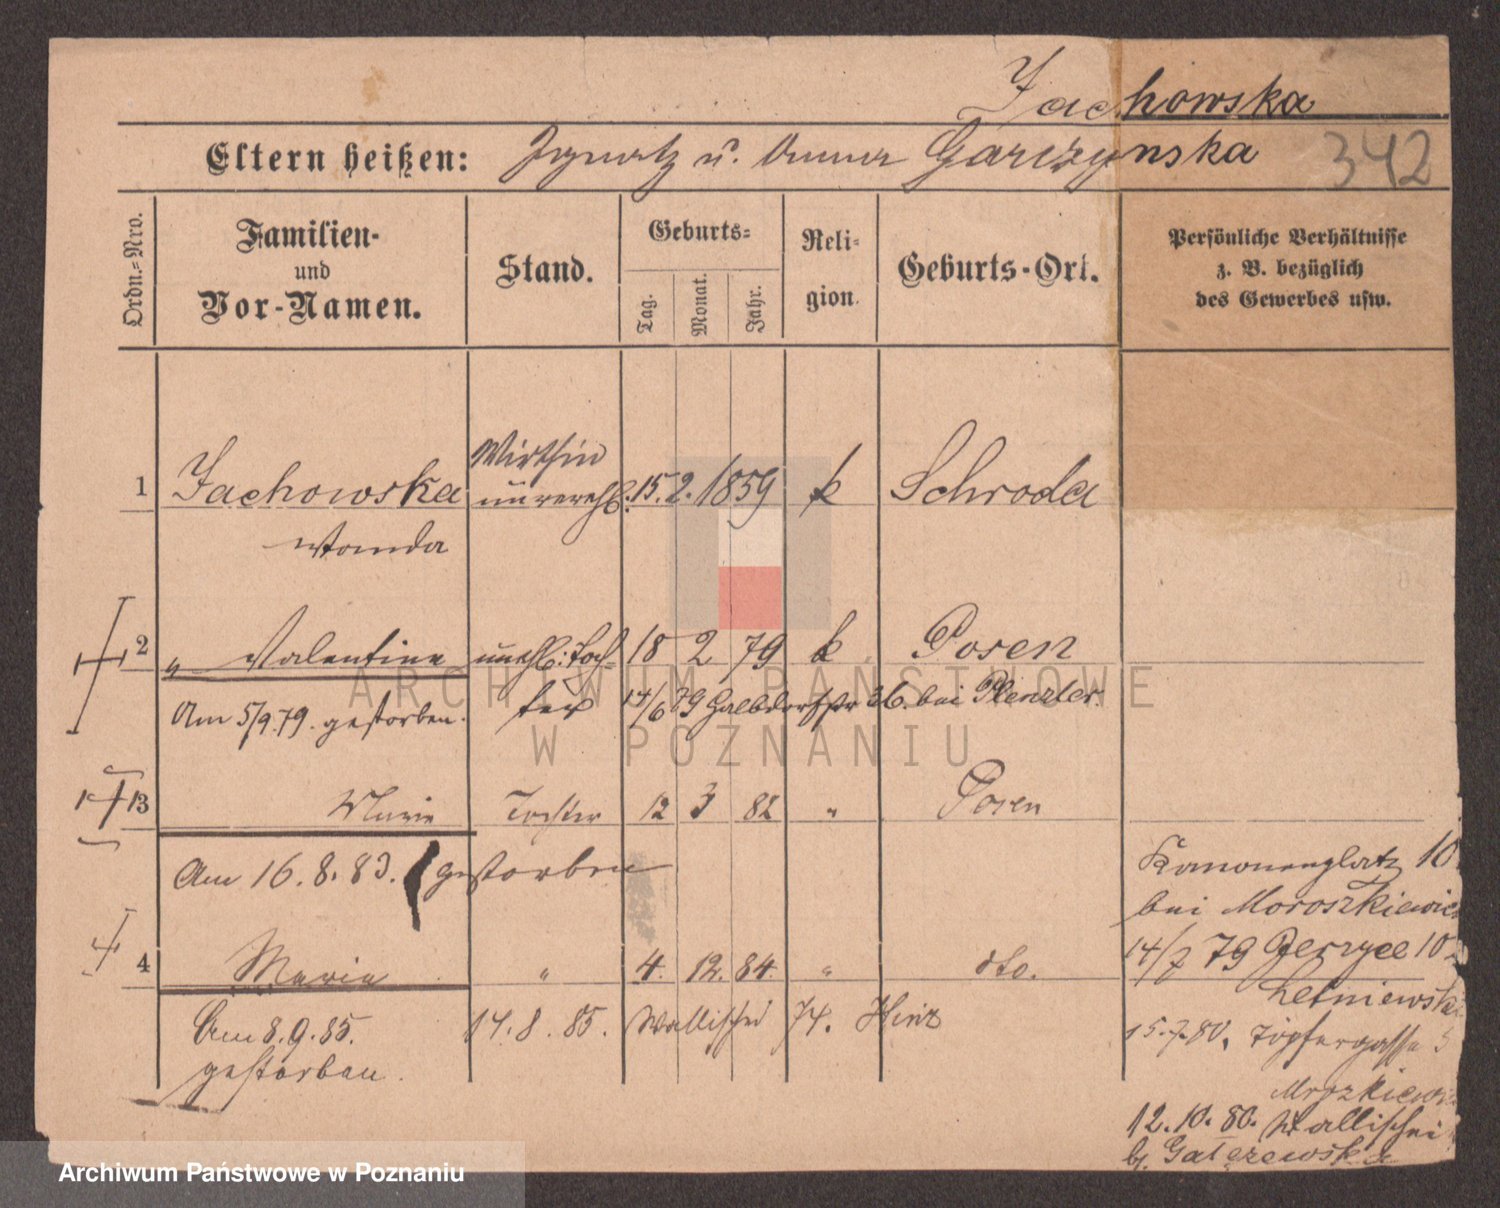 Jachowska
Eltern heißen: Ignatz u. Anna Garczynska 342
Ordn.=Nro. Familien- und Vor-Namen. Stand. Geburts= Tag. Monat. Jahr. Reli= gion. Geburts-Ort. Persönliche Verhältnisse z. B. bezüglich des Gewerbes usw.
Wirthin
1 Jachowska unverehl. 15. 2. 1859 k Schroda
Wanda
2 " Valentine unehl. Toch- 18 2 79 k Posen
Am 5/9.79. gestorben. ter 14/6 79 Halbdorfstr 36. bei Plenzler.
3 Marie Tochter 12 3 82 " Posen
Am 16. 8. 83. gestorben
Kanonenplatz 10.
bei Moroszkiewicz
14/7 79 Jerzyce 10
4 Marie " 4. 12. 84. " dto.
Letniewska
Am 8. 9. 85. 14. 8. 85. Wallischei 74. Hinz
15.7.80. Töpfergasse 5
gestorben.
Mrozkiewicz
12. 10. 80. Wallischei
b. Gałęzewska
ARCHIWUM PAŃSTWOWE
W POZNANIU
Archiwum Państwowe w Poznaniu